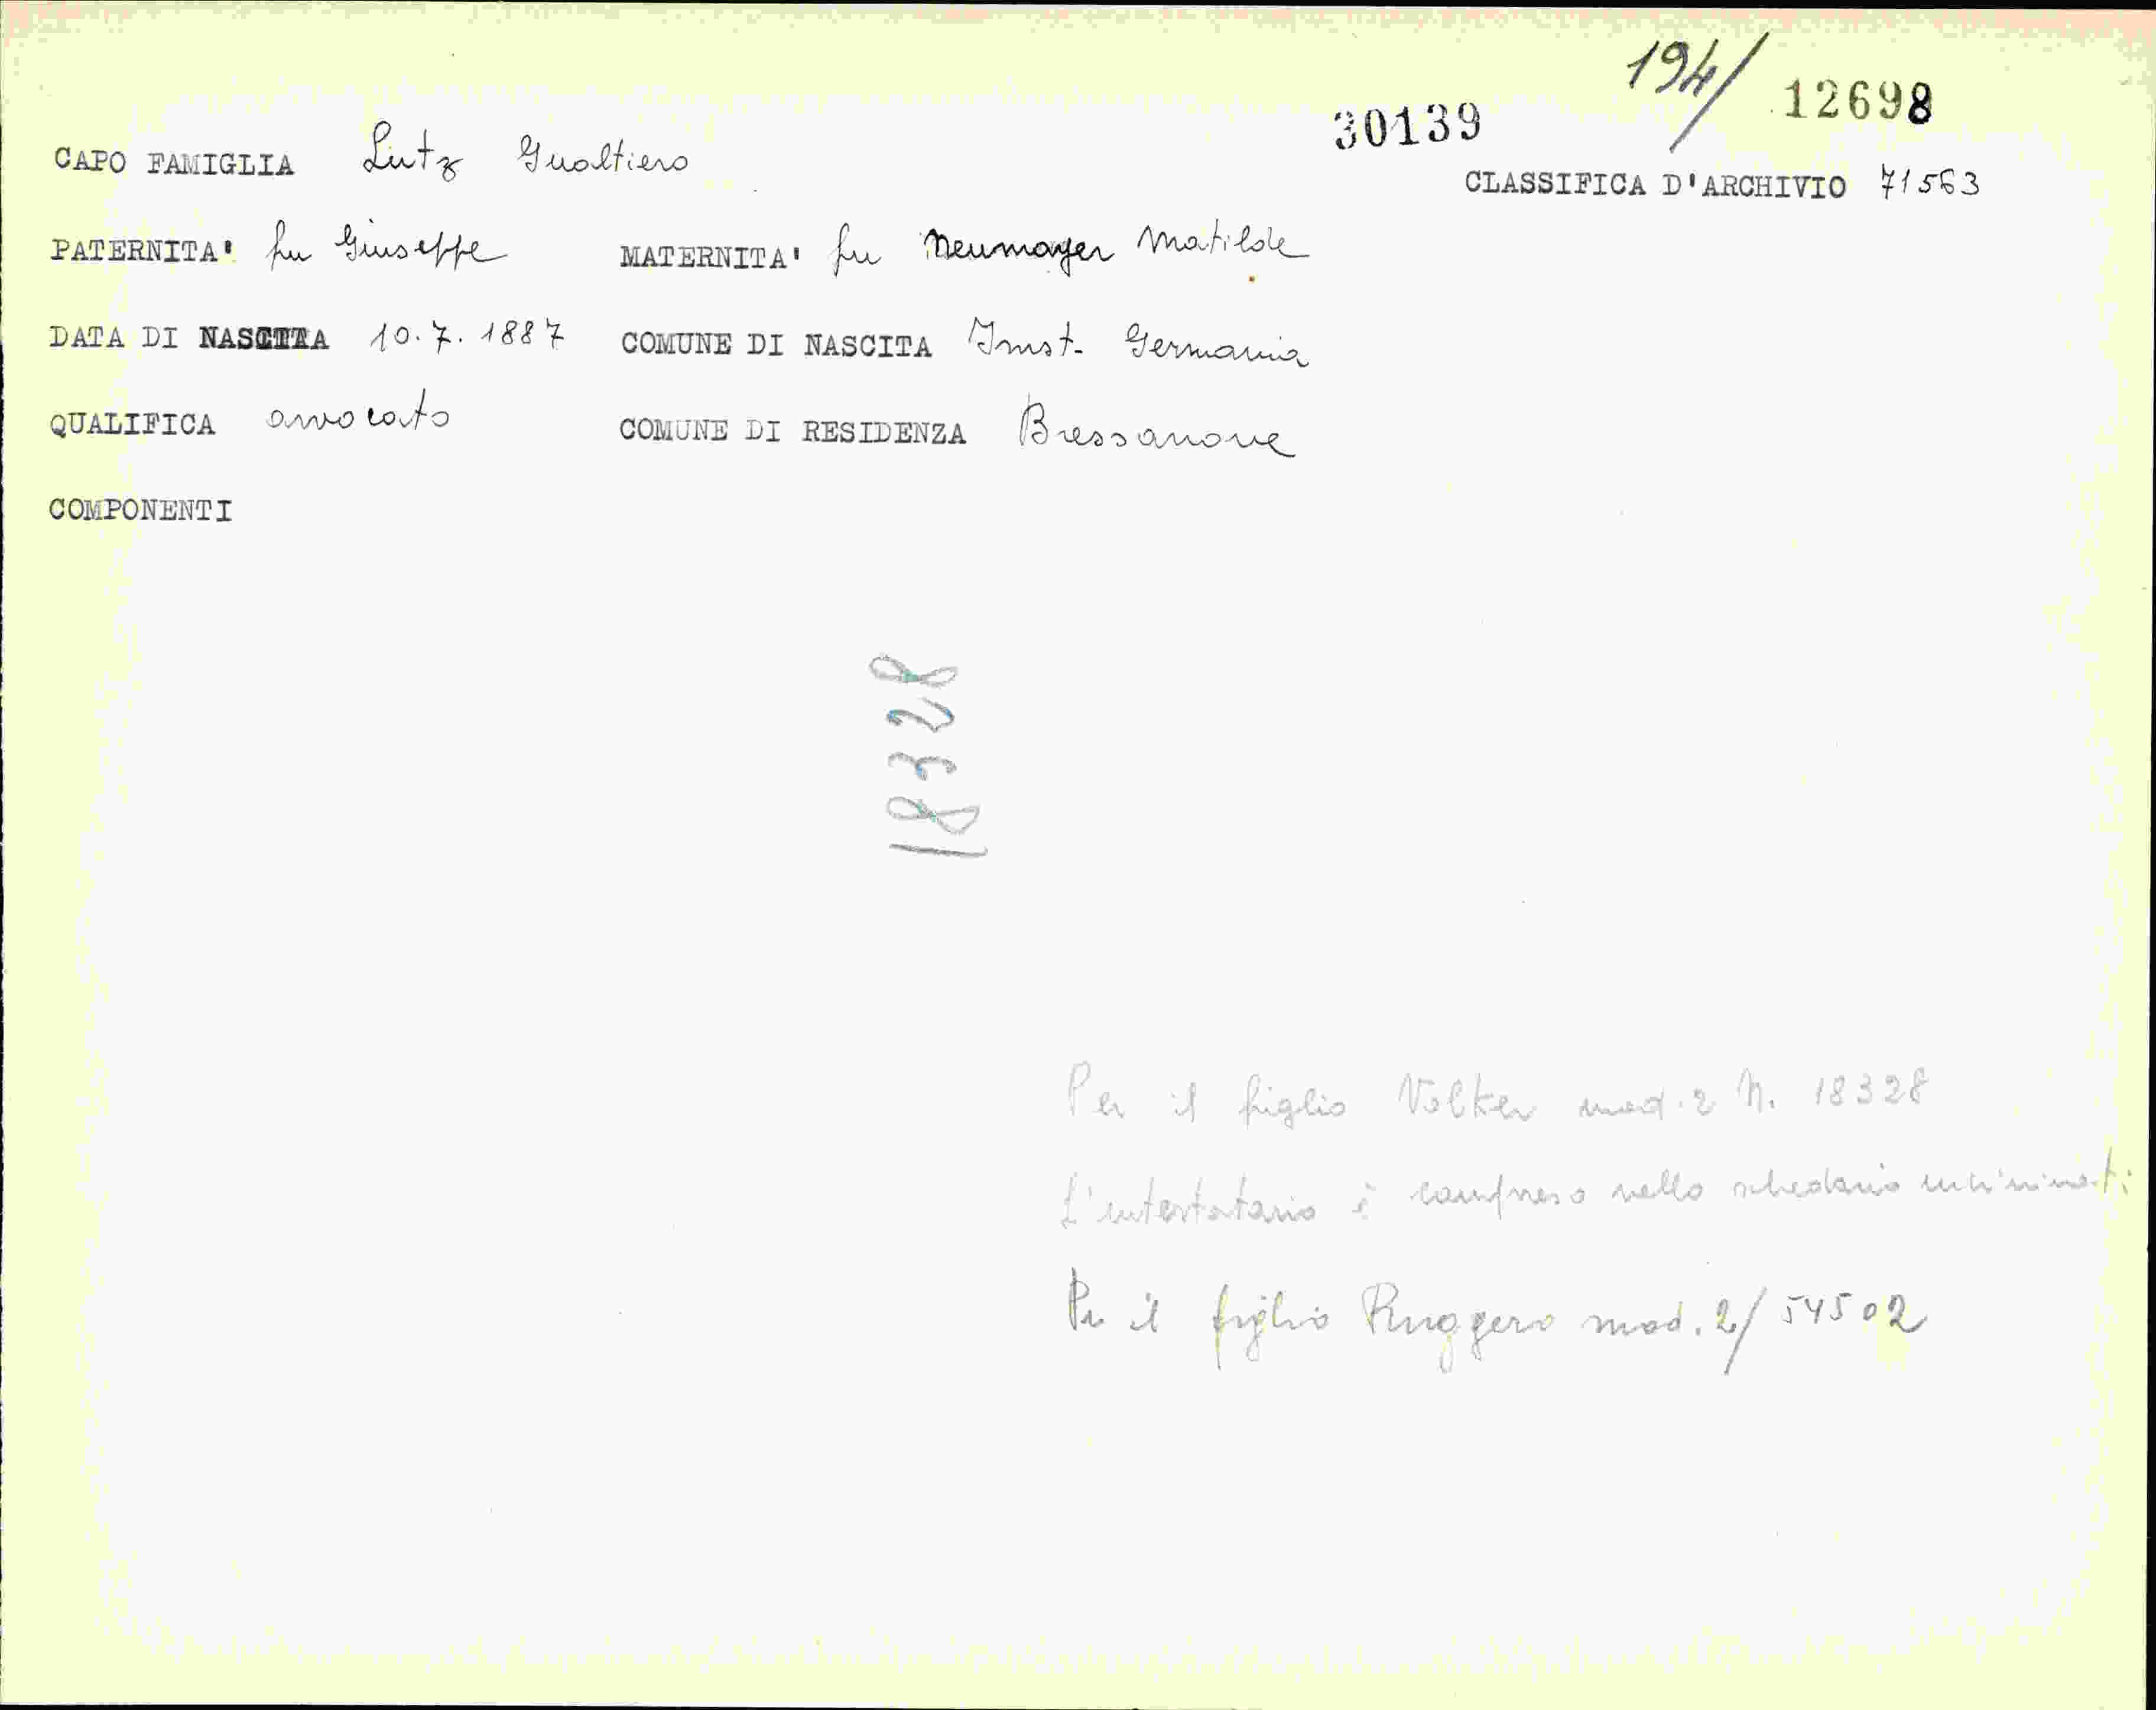 194/ 12698
30139
CAPO FAMIGLIA Lutz Gualtiero
CLASSIFICA D'ARCHIVIO 71563
PATERNITA' fu Giuseppe MATERNITA' fu Neumayer Matilde
DATA DI NASCITA 10.7.1887 COMUNE DI NASCITA Imst. Germania
QUALIFICA avvocato COMUNE DI RESIDENZA Bressanone
COMPONENTI
18328
Per il figlio Volker mod. 2 N. 18328
L'intestatario è compreso nello schedario
Per il figlio Ruggero mod. 2/ 54502